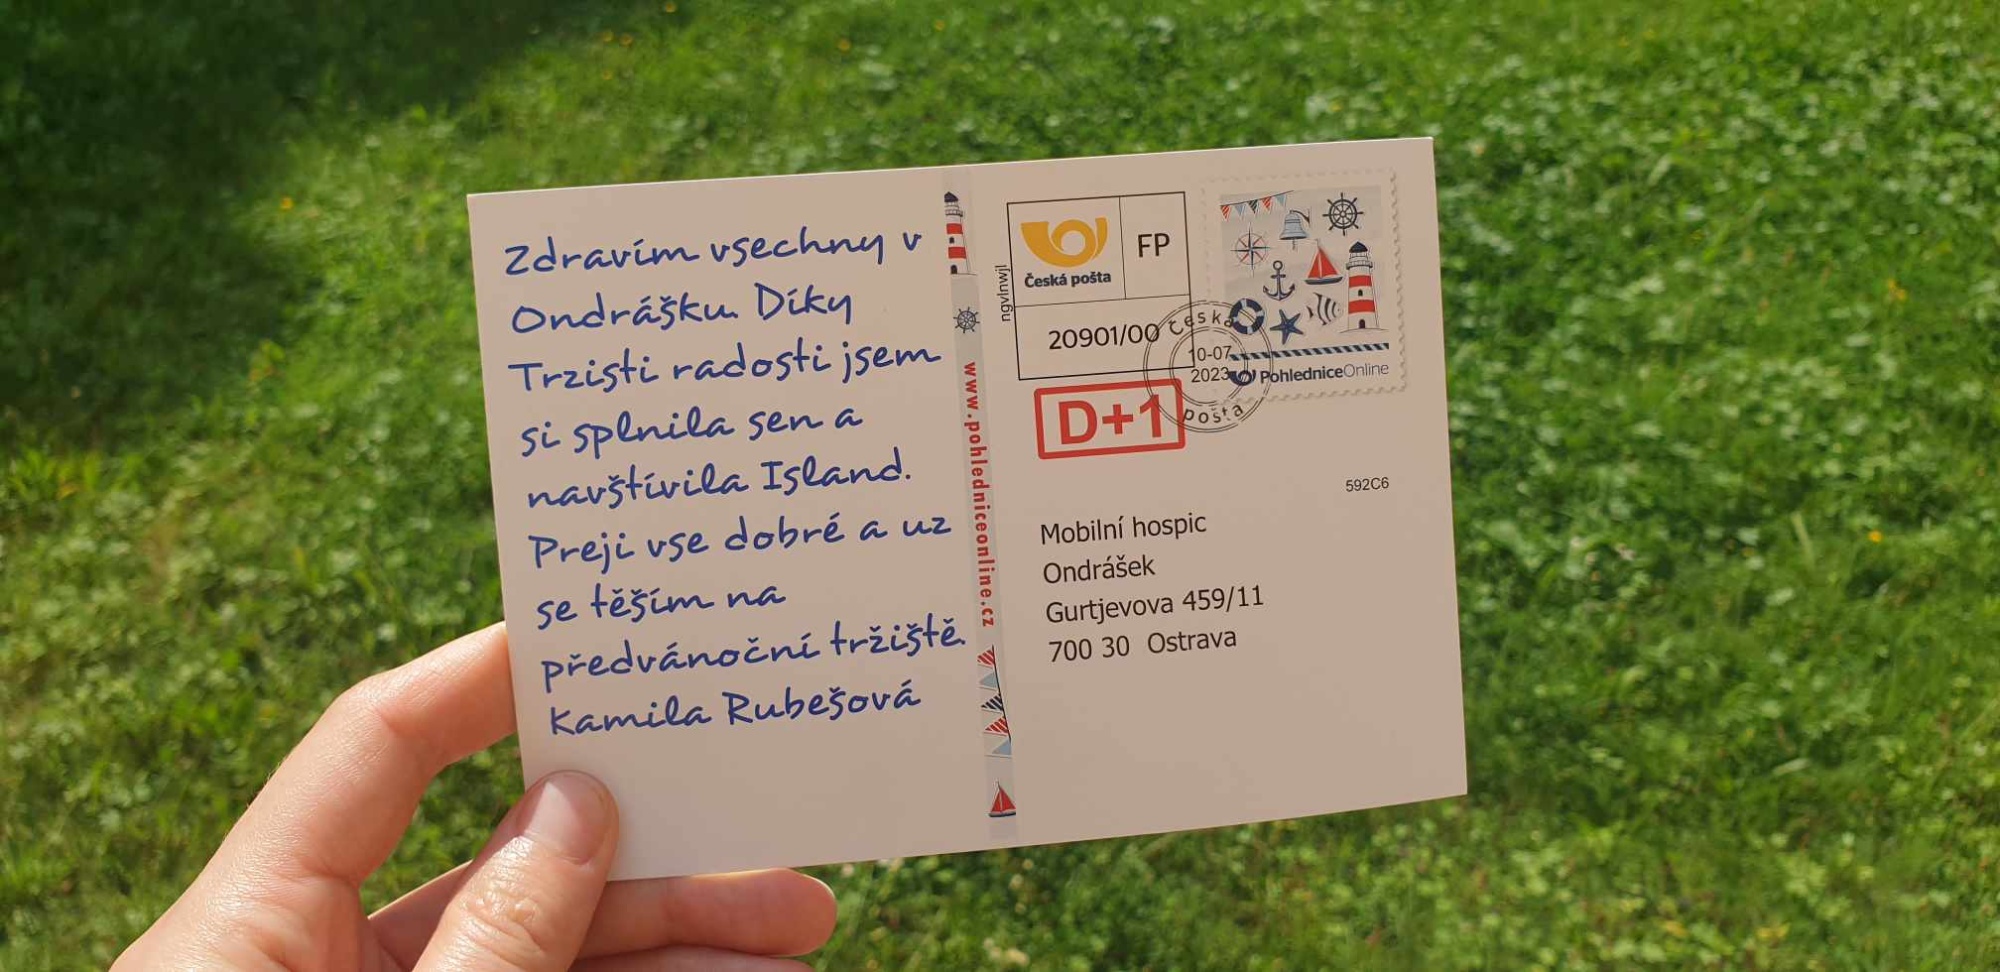 Zdravím vsechny v
Ondrášku. Díky
Trzisti radosti jsem
si splnila sen a
navštívila Island.
Preji vse dobré a uz
se těším na
předvánoční tržiště.
Kamila Rubešová
www.pohledniceonline.cz
ngvlnwjl
Česká pošta
FP
20901/00
D+1
Česká
10-07
2023
pošta
PohledniceOnline
592C6
Mobilní hospic
Ondrášek
Gurtjevova 459/11
700 30 Ostrava